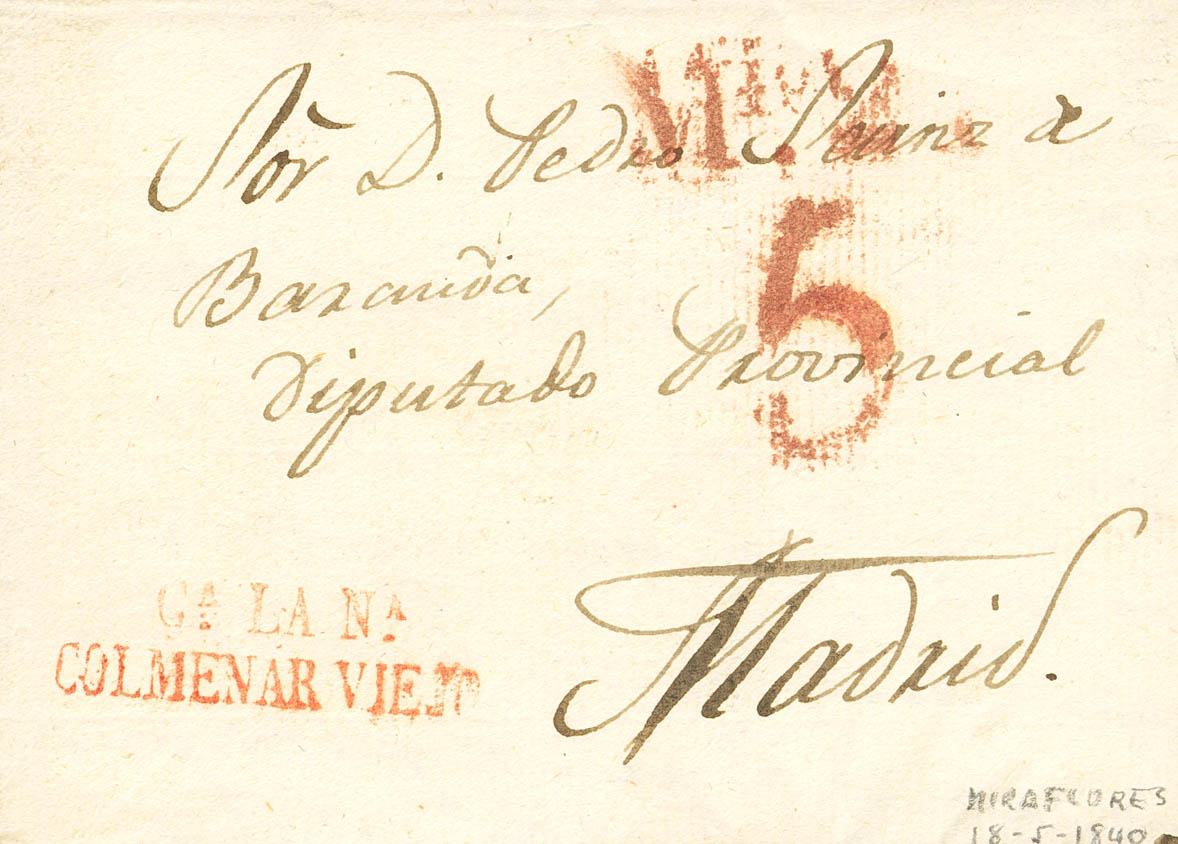 Sor D. Pedro Sainz d
Baranda,
Diputado Provincial
5
Madrid.
Cª LA Nª
COLMENAR VIEJO
MIRAFLORES
18-5-1840